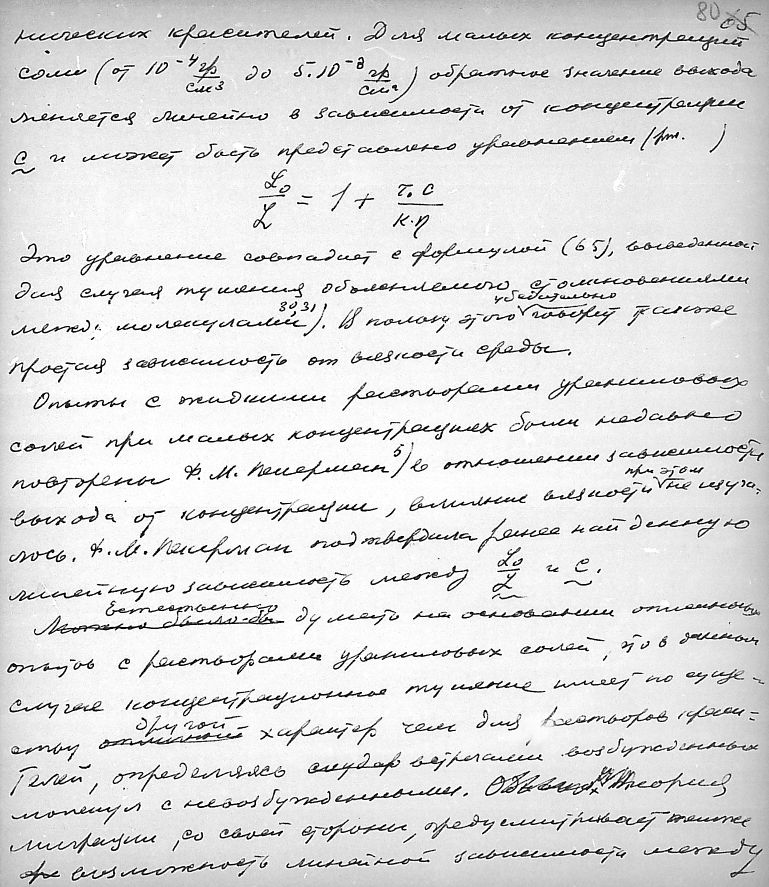 80 65
нических красителей. Для малых концентраций
соли (от 10⁻⁴ гр/см³ до 5.10⁻³ гр/см³) обратное значение выхода
меняется линейно в зависимости от концентрации
с и может быть представлено уравнением (рт. )
L₀/L = 1 + τ₀ c / κ·η
Это уравнение совпадает с формулой (65), выведенной
для случая тушения объясняемого столкновениями
между молекулами 30,31). В пользу этого убедительно говорит также
простая зависимость от вязкости среды.
Опыты с жидкими растворами ураниловых
солей при малых концентрациях были недавно
повторены Ф.М. Пекерман 5) в отношении зависимости
выхода от концентрации, влияние вязкости при этом не изуча-
лось. Ф.М. Пекерман подтвердила ранее найденную
линейную зависимость между L₀/L и c.
Можно было бы Естественно думать на основании описанных
опытов с растворами ураниловых солей, что в данном
случае концентрационное тушение имеет по суще-
ству отличный другой характер чем для растворов краси-
телей, определяясь встречами возбужденных
молекул с невозбужденными. теория
миграции, со своей стороны, предусматривает также
возможность линейной зависимости между